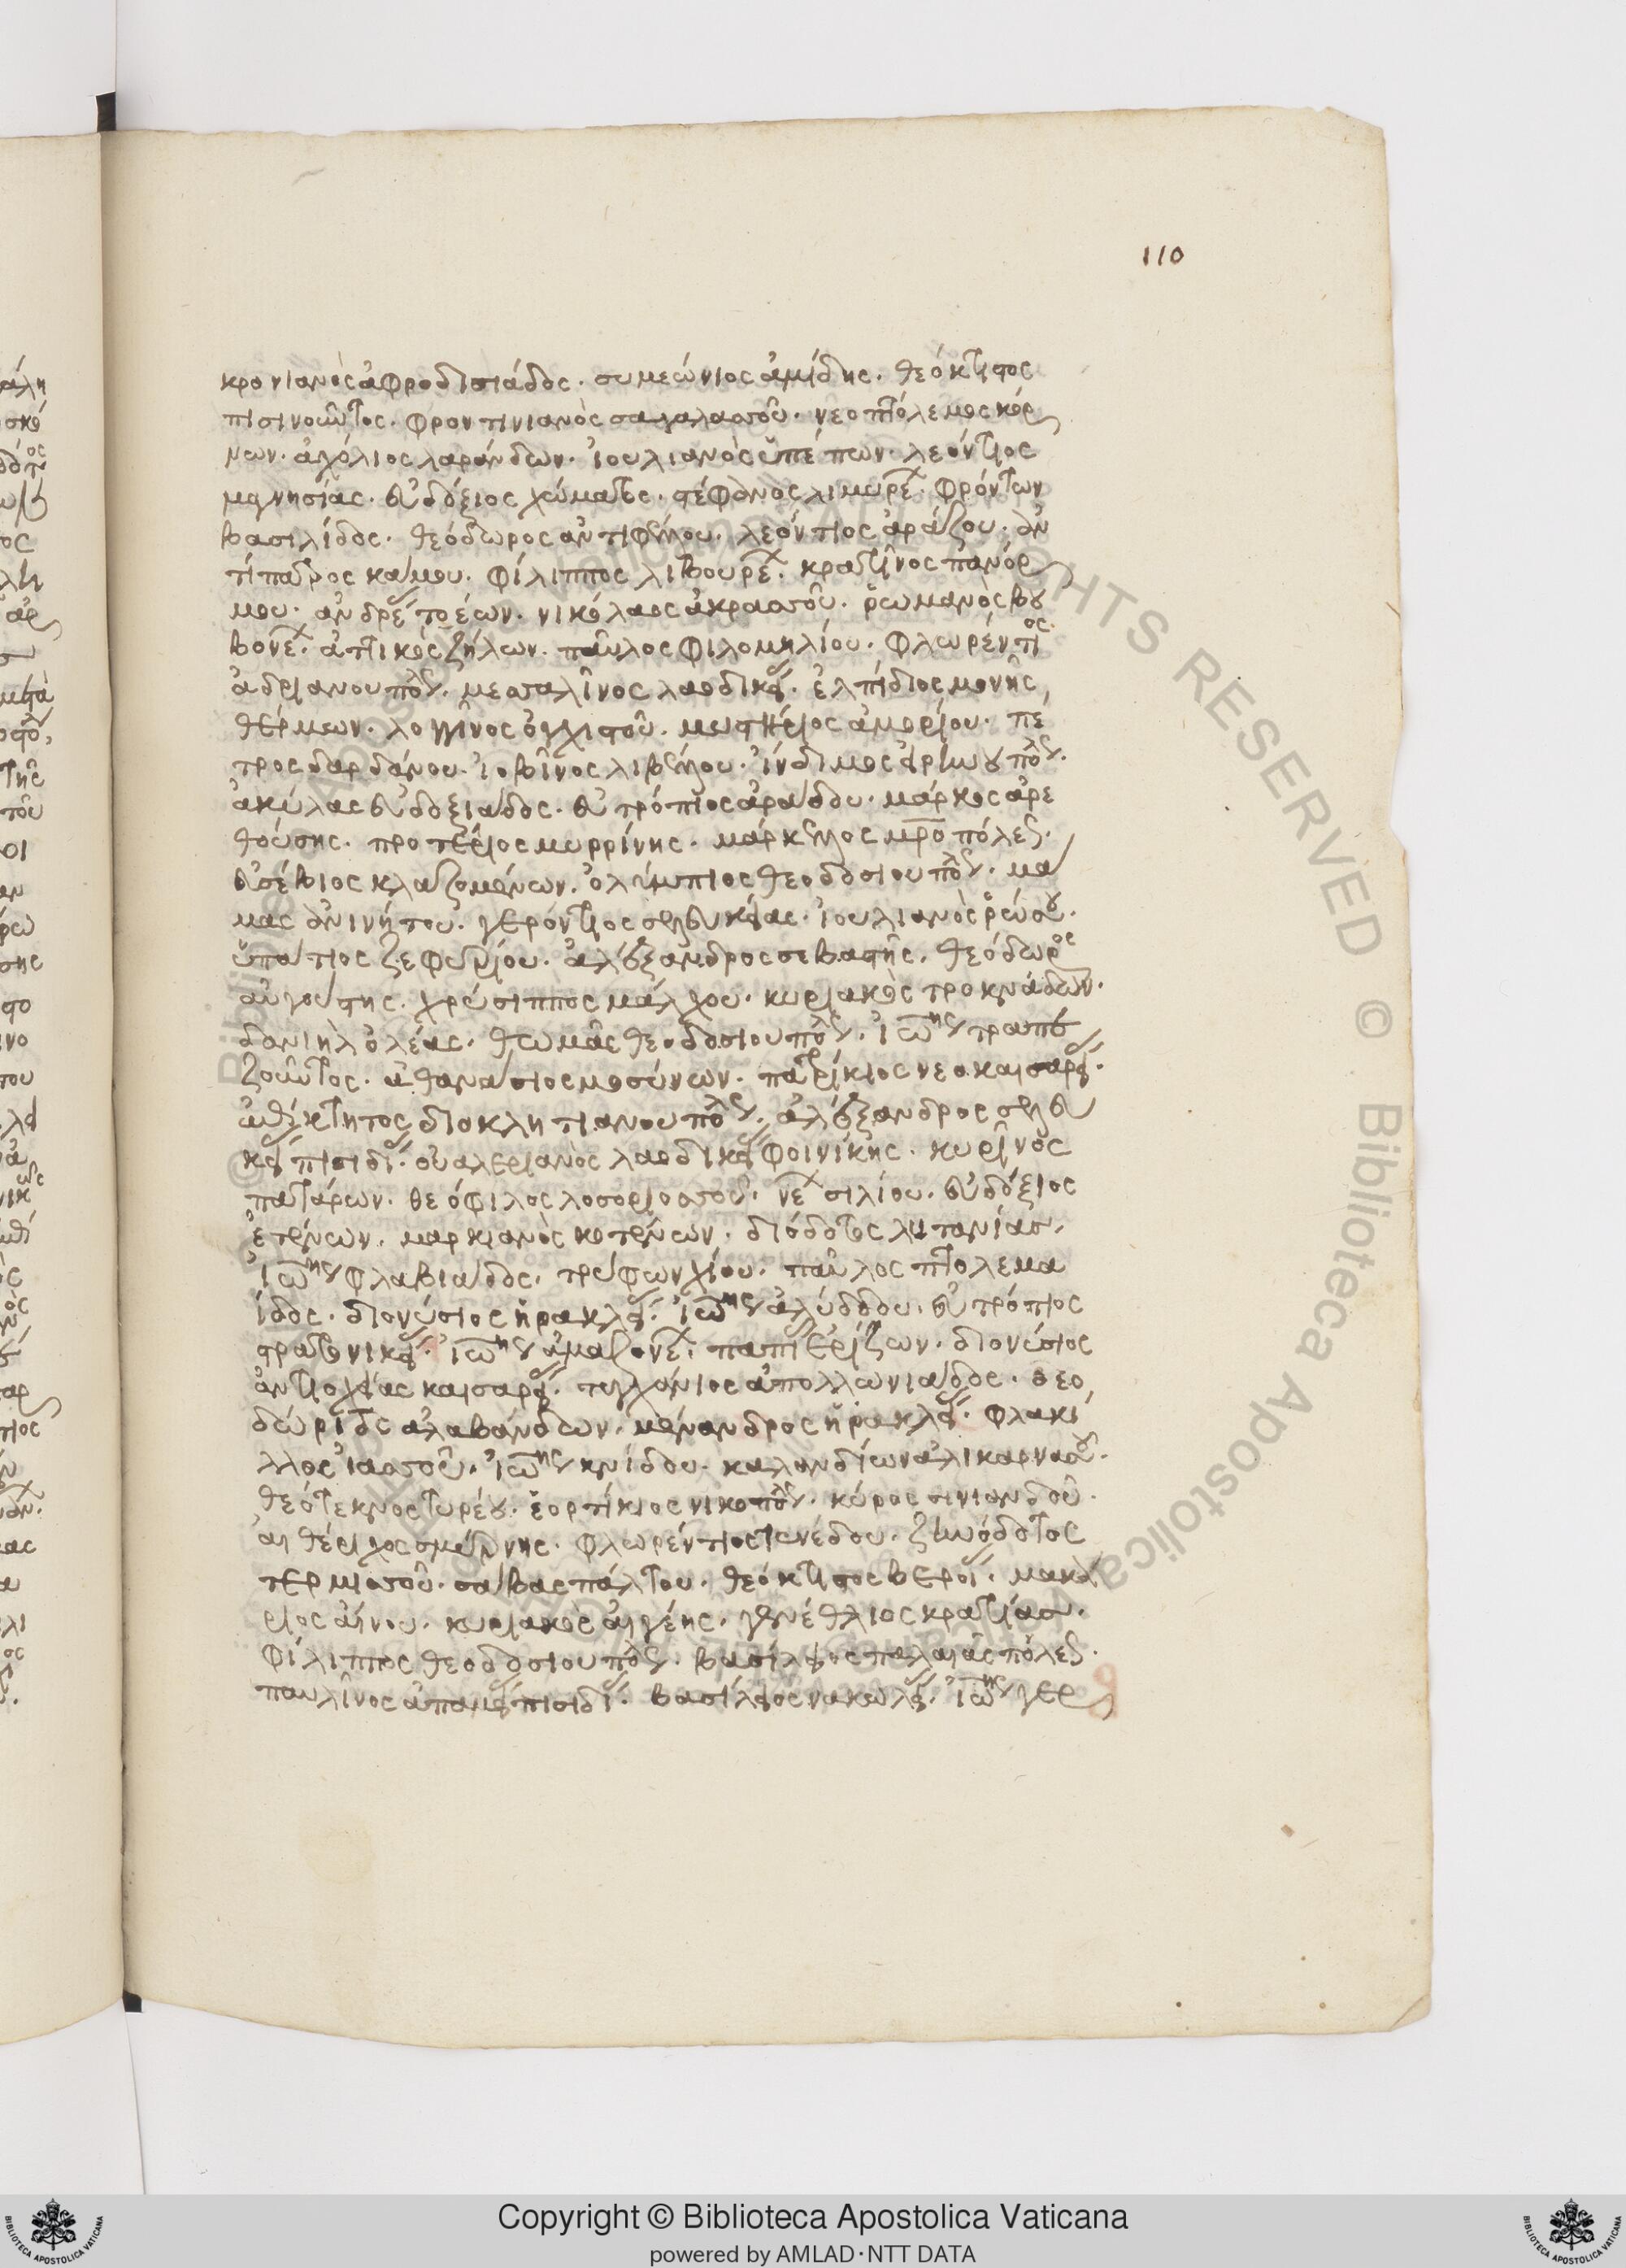 110
κρονιανὸς ἀφροδισιάδος. συμεώνιος ἀμίδης. θεόκτιστος
πισινοῦντος. φροντινιανὸς σαγαλασσοῦ. νεοπτόλεμος κόρ
νων. ἀχόλιος λαράνδων. ἰουλιανὸς ὑπέπων. λεόντιος
μαγνησίας. εὐδόξιος χώματος. στέφανος λιμυρε. φρόντων
βασιλίδος. θεόδωρος ἀντιφέλλου. λεόντιος ἀράξου. ἀν
τίπατρος καίμου. φίλιππος λιβουρε. κρατῖνος πανόρ
μου. ἀνδρε τοέων. νικόλαος ἀκρασσοῦ. ῥωμανὸς βου
βονε. ἀττικὸς ζήλων. παῦλος φιλομηλίου. φλωρέντιος
ἀδριανουπόλ. μεσσαλῖνος λαοδικεί. ἐλπίδιος μονῆς
θέρμεων. λογγῖνος ὀργιστοῦ. μυστήριος ἀμορίου. πέ
τρος δαρδάνου. ἰοβῖνος δεβέλτου. ἰνδιμος εἰρηνουπόλ.
ἀκύλας εὐδοξιάδος. εὐτρόπιος ἀράδδου. μάρκος ἀρε
θούσης. προτέριος μυρρίνης. μάρκελλος μρο πόλεως.
εὐσέβιος κλαζομένων. ὀλύμπιος θεοδοσιουπόλ. μά
μας ἀνινήτου. γερόντιος σελευκείας. ἰουλιανὸς ῥώσου.
ὑπάτιος ζεφυρίου. ἀλέξανδρος σεβαστῆς. θεόδωρος
αὐγούστης. χρύσιππος μάλλου. κυριακὸς τροκνάδων.
δανιὴλ ὀλέας. θωμᾶς θεοδοσιουπόλ. ἰωης τραπε
ζοῦντος. ἀθανάσιος μοσύνων. πατρίκιος νεοκαισαρεί.
ἀθίκτητος διοκλητιανουπόλ. ἀλέξανδρος σελευ
κεί πισιδί. οὐαλεριανὸς λαοδικεί φοινίκης. κυρῖνος
πατάρων. θεόφιλος λοσοριασσοῦ. νε σιλίου. εὐδόξιος
ἐτέννων. μαρκιανὸς κοτέννων. διόδοτος λυτανίας.
ἰωης φλαβιάδος. τρύφων χίου. παῦλος πτολεμα
ίδος. διονύσιος ἡρακλεί. ἰωης ἀλύδδου. εὐτρόπιος
στρατονικεί. ἰωης ἀμαζονε. παπί ἐρίζων. διονύσιος
ἀντιοχείας καισαρεί. τυχάνιος ἀπολλωνιάδος. θεο
δώριτος ἀλαβάνδων. μένανδρος ἡρακλεί. φλακί
λλος ἰασσοῦ. ἰωης κνίδου. καλανδίων ἀλικαρνασσοῦ.
θεότεκνος τυρέου. ἑορτίκιος νικοπόλ. κύρος σινιανδοῦ.
αἰθέριχος σμύρνης. φλωρέντιος τενέδου. ζηνόδοτος
τερμισσοῦ. σάββας πάλτου. θεόκτιστος βεροί. μακά
ριος αἴνου. κυριακὸς αἰγέης. γενέθλιος κρατείας.
φίλιππος θεοδοσιουπόλ. βασίλειος παλαιᾶς πόλεως.
παυλῖνος ἀπαμεί πισιδί. βασίλειος νακωλεί. ἰωης γερ